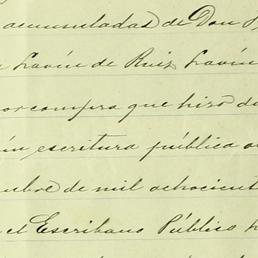 acumuladas de Don
Lavín de Ruiz Lavín
por compra que hizo de
escritura pública
de mil ochocient
el Escribano Público